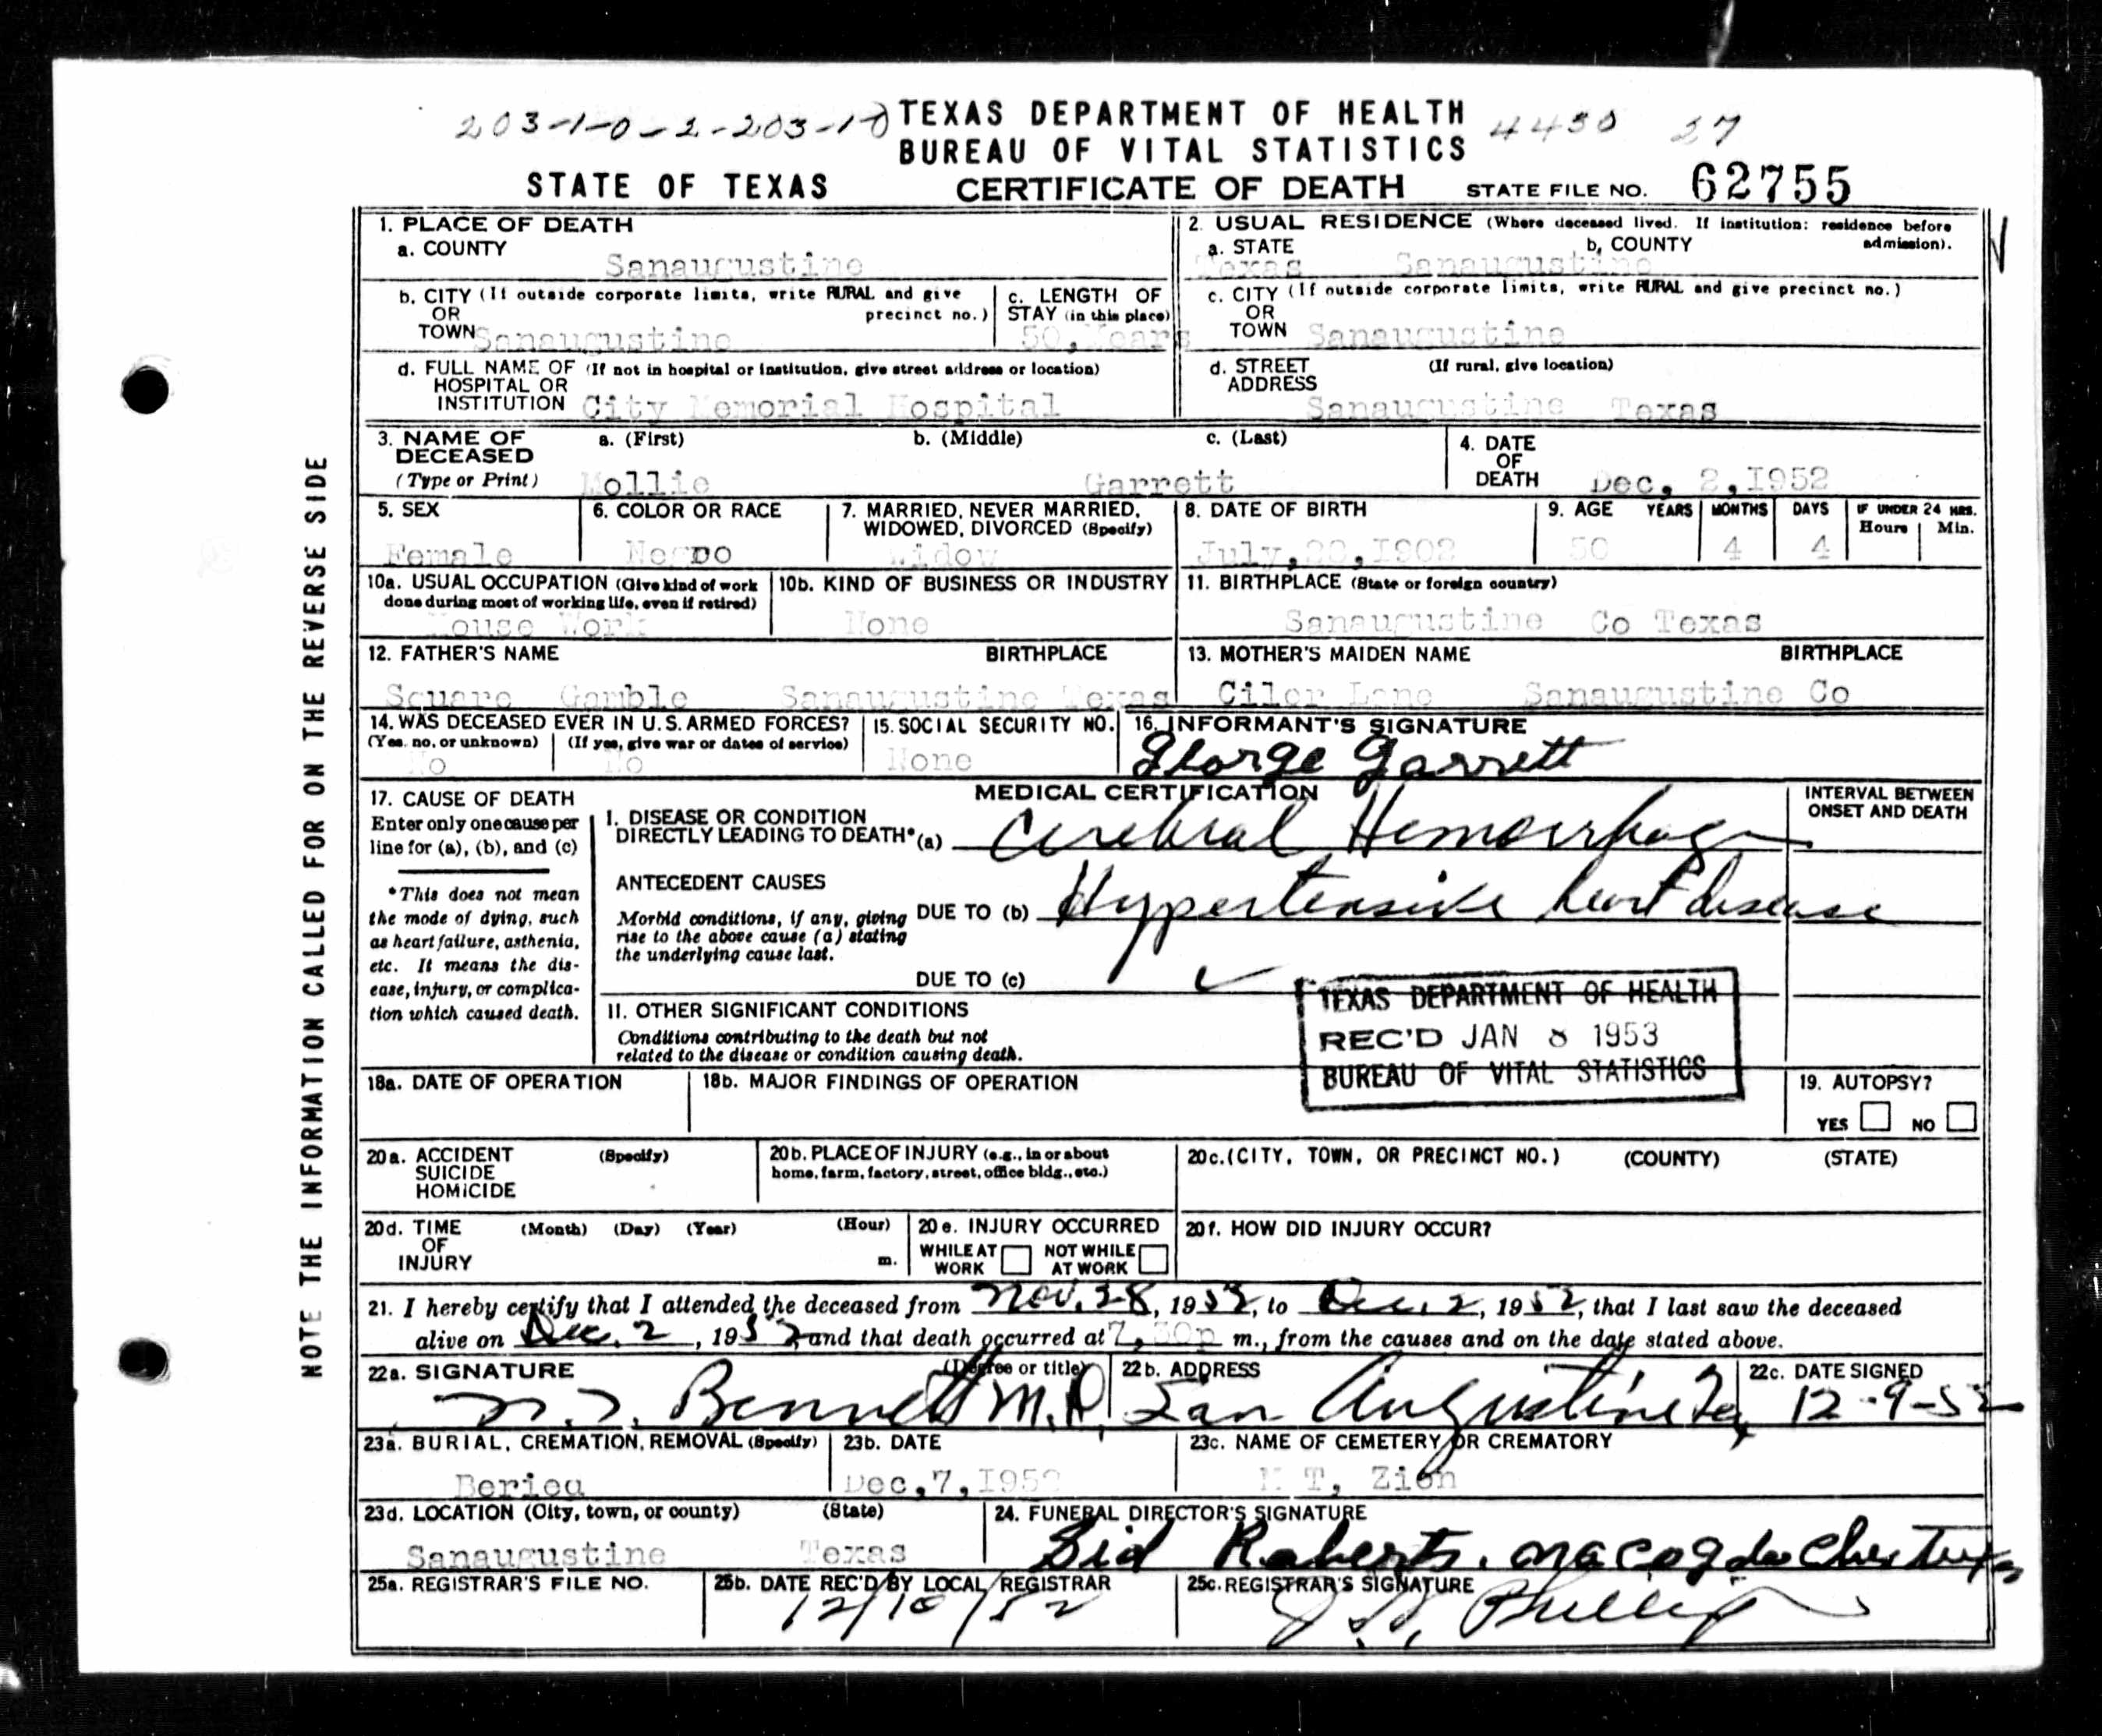 203-1-0-2-203-10 TEXAS DEPARTMENT OF HEALTH 4430 27
BUREAU OF VITAL STATISTICS
STATE OF TEXAS CERTIFICATE OF DEATH STATE FILE NO. 62755
1. PLACE OF DEATH
a. COUNTY
Sanaugustine
2. USUAL RESIDENCE (Where deceased lived. If institution: residence before admission).
a. STATE b. COUNTY
Texas Sanaugustine
b. CITY (If outside corporate limits, write RURAL and give precinct no.)
OR
TOWN Sanaugustine
c. LENGTH OF
STAY (in this place)
50, Years
c. CITY (If outside corporate limits, write RURAL and give precinct no.)
OR
TOWN Sanaugustine
d. FULL NAME OF (If not in hospital or institution, give street address or location)
HOSPITAL OR
INSTITUTION City Memorial Hospital
d. STREET (If rural, give location)
ADDRESS
Sanaugustine Texas
3. NAME OF a. (First) b. (Middle) c. (Last)
DECEASED
(Type or Print) Mollie Garrett
4. DATE
OF
DEATH Dec, 2,I952
5. SEX
Female
6. COLOR OR RACE
Negro
7. MARRIED, NEVER MARRIED,
WIDOWED, DIVORCED (Specify)
Widow
8. DATE OF BIRTH
July,28,I902
9. AGE YEARS MONTHS DAYS IF UNDER 24 HRS.
Hours Min.
50 4 4
10a. USUAL OCCUPATION (Give kind of work
done during most of working life, even if retired)
House Work
10b. KIND OF BUSINESS OR INDUSTRY
None
11. BIRTHPLACE (State or foreign country)
Sanaugustine Co Texas
12. FATHER'S NAME BIRTHPLACE
Square Gamble Sanaugustine Texas
13. MOTHER'S MAIDEN NAME BIRTHPLACE
Ciler Lane Sanaugustine Co
14. WAS DECEASED EVER IN U.S. ARMED FORCES?
(Yes, no, or unknown) (If yes, give war or dates of service)
No No
15. SOCIAL SECURITY NO.
None
16. INFORMANT'S SIGNATURE
George Garrett
17. CAUSE OF DEATH
Enter only one cause per
line for (a), (b), and (c)
*This does not mean
the mode of dying, such
as heart failure, asthenia,
etc. It means the dis-
ease, injury, or complica-
tion which caused death.
MEDICAL CERTIFICATION
INTERVAL BETWEEN
ONSET AND DEATH
I. DISEASE OR CONDITION
DIRECTLY LEADING TO DEATH* (a) Cerebral Hemorrhage
ANTECEDENT CAUSES
Morbid conditions, if any, giving
rise to the above cause (a) stating
the underlying cause last.
DUE TO (b) Hypertensive heart disease
DUE TO (c)
II. OTHER SIGNIFICANT CONDITIONS
Conditions contributing to the death but not
related to the disease or condition causing death.
TEXAS DEPARTMENT OF HEALTH
REC'D JAN 8 1953
BUREAU OF VITAL STATISTICS
18a. DATE OF OPERATION
18b. MAJOR FINDINGS OF OPERATION
19. AUTOPSY?
YES NO
20a. ACCIDENT (Specify)
SUICIDE
HOMICIDE
20b. PLACE OF INJURY (e.g., in or about
home, farm, factory, street, office bldg., etc.)
20c. (CITY, TOWN, OR PRECINCT NO.) (COUNTY) (STATE)
20d. TIME (Month) (Day) (Year) (Hour)
OF
INJURY m.
20e. INJURY OCCURRED
WHILE AT WORK NOT WHILE AT WORK
20f. HOW DID INJURY OCCUR?
21. I hereby certify that I attended the deceased from Nov. 28, 1952, to Dec. 2, 1952, that I last saw the deceased
alive on Dec. 2, 1952, and that death occurred at 7,30p m., from the causes and on the date stated above.
22a. SIGNATURE (Degree or title)
Bennett M.D.
22b. ADDRESS
San Augustine Tex
22c. DATE SIGNED
12-9-52
23a. BURIAL, CREMATION, REMOVAL (Specify)
Beried
23b. DATE
Dec,7,I952
23c. NAME OF CEMETERY OR CREMATORY
M T, Zion
23d. LOCATION (City, town, or county) (State)
Sanaugustine Texas
24. FUNERAL DIRECTOR'S SIGNATURE
Sid Roberts. Nacogdoches Texas
25a. REGISTRAR'S FILE NO.
25b. DATE REC'D BY LOCAL REGISTRAR
12/10/52
25c. REGISTRAR'S SIGNATURE
Phillips
NOTE THE INFORMATION CALLED FOR ON THE REVERSE SIDE